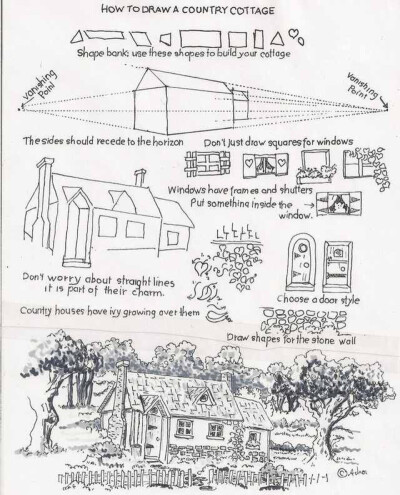 HOW TO DRAW A COUNTRY COTTAGE
Shape bank; use these shapes to build your cottage
Vanishing
Point
Vanishing
Point
The sides should recede to the horizon
Don't just draw squares for windows
Windows have frames and shutters
Put something inside the
window.
Don't worry about straight lines
it is part of their charm.
Choose a door style
Country houses have ivy growing over them
Draw shapes for the stone wall